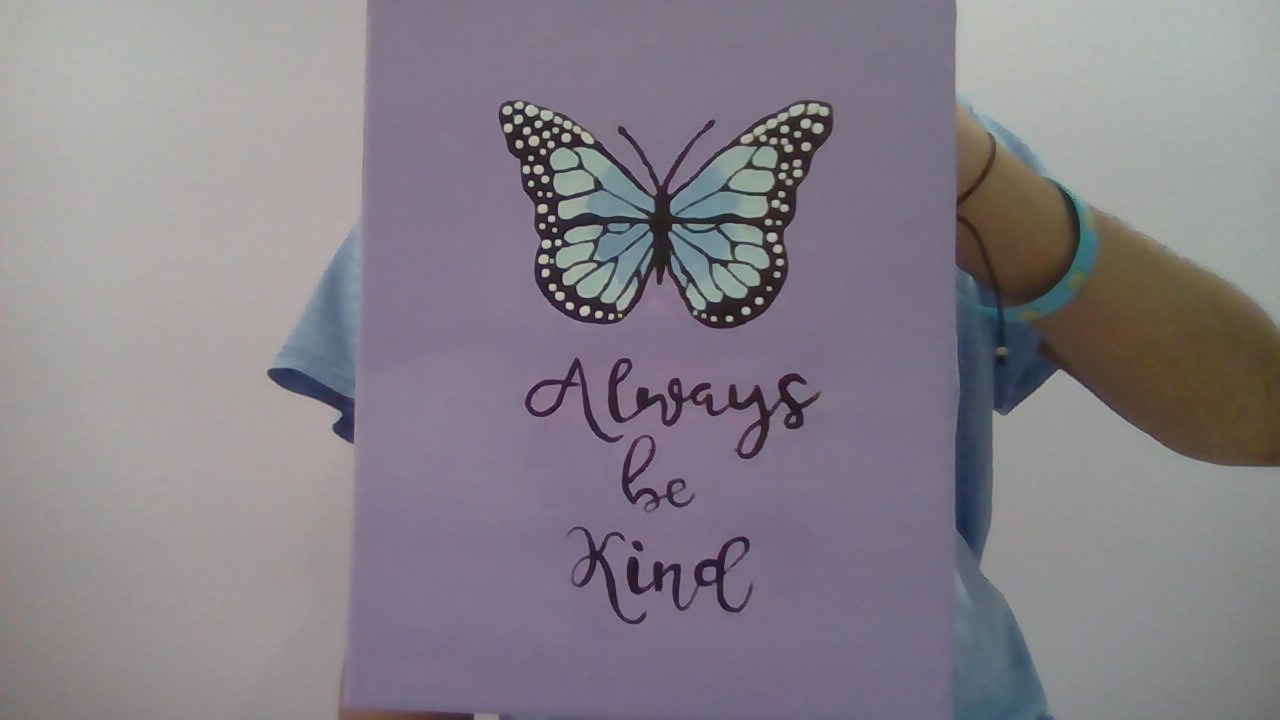 Always
be
Kind